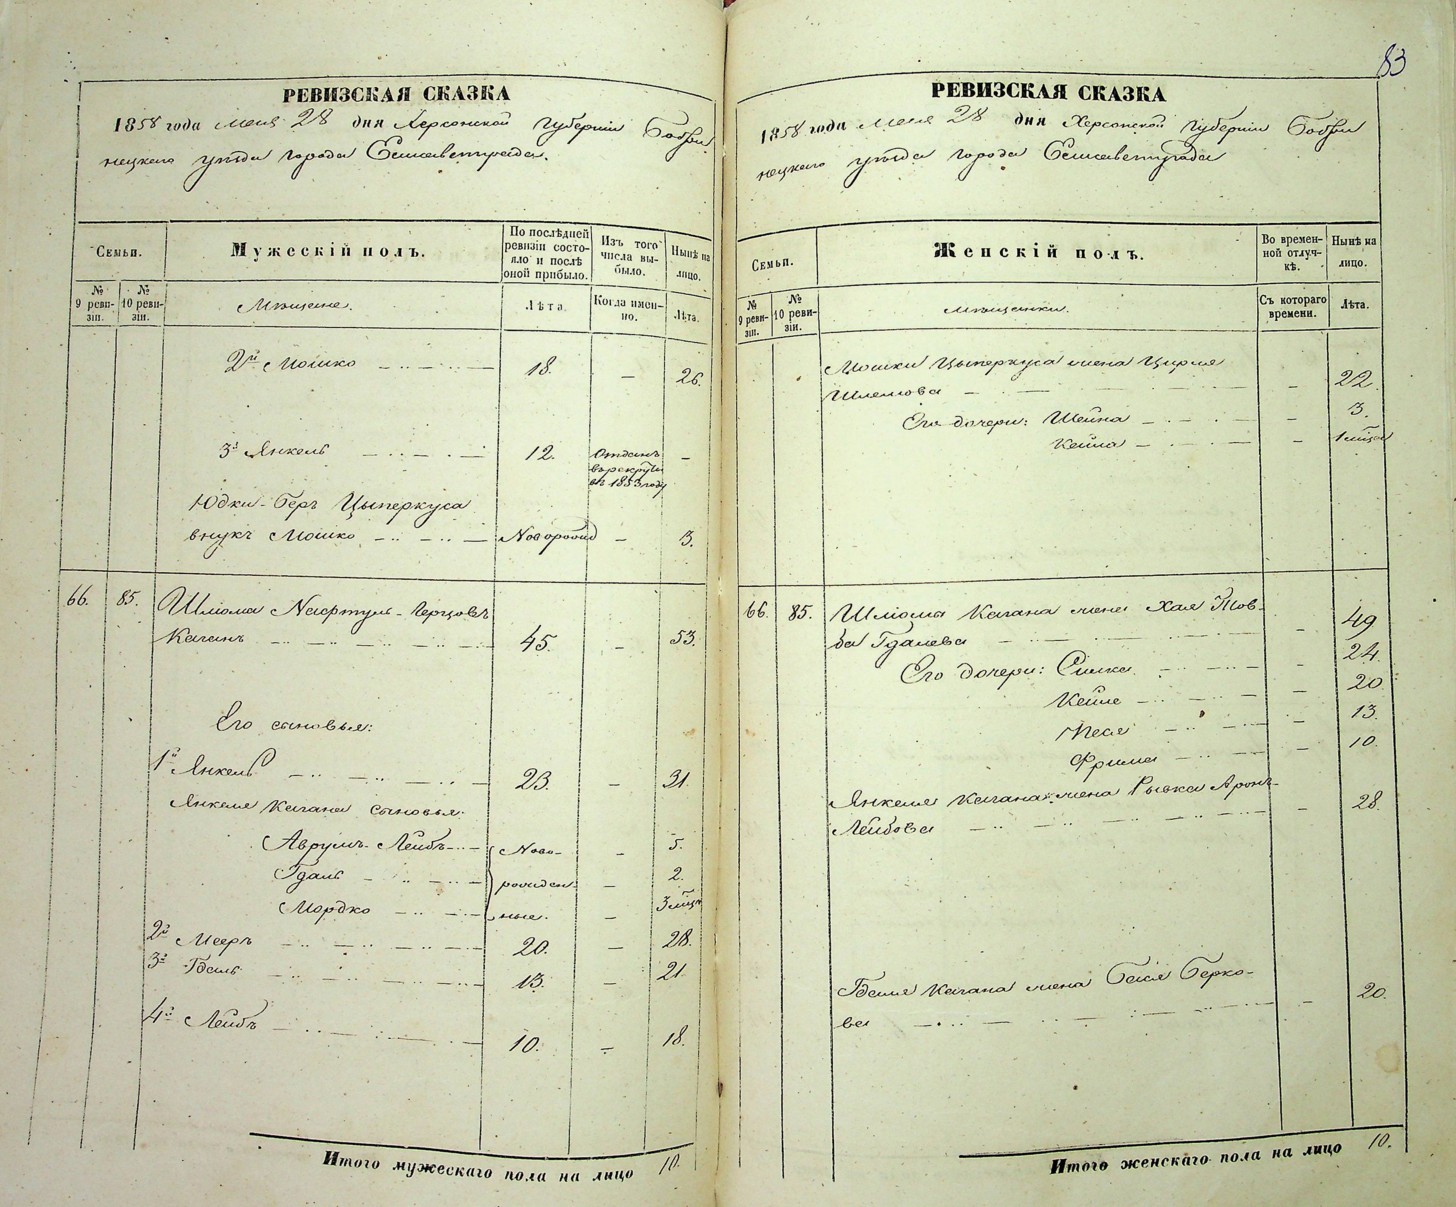 83
РЕВИЗСКАЯ СКАЗКА
1858 года Мая 28 дня Херсонской Губернии Бобри
нецкаго уѣзда города Елисаветграда.
Семьи.
Мужескій полъ.
По послѣдней ревизіи состояло и послѣ оной прибыло.
Изъ того числа выбыло.
Нынѣ на лицо.
№ 9 ревизіи.
№ 10 ревизіи.
Мѣщане.
Лѣта.
Когда именно.
Лѣта.
2й Мошко 18. — 26.
3й Янкель 12. Отданъ въ рекруты въ 1853 году —
Юдки-Беръ Цыперкуса
внукъ Мошко Новорожд — 3.
66. 85. Шлiома Нафтуль-Герцовъ
Каганъ 45. — 53.
Его сыновья:
1й Янкель 23. — 31.
Янкеля Кагана сыновья:
Аврумъ-Лейбъ Ново- — 5.
Гдаль рожден- — 2.
Мордко ные. — 3 мѣц.
2й Мееръ 20. — 28.
3й Гдаль 13. — 21.
4й Лейбъ 10. — 18.
Итого мужескаго пола на лицо 10.
РЕВИЗСКАЯ СКАЗКА
1858 года Мая 28 дня Херсонской Губернии Бобри
нецкаго уѣзда города Елисаветграда
Семьи.
Женскій полъ.
Во временной отлучкѣ.
Нынѣ на лицо.
№ 9 ревизіи.
№ 10 ревизіи.
Мѣщанки.
Съ котораго времени.
Лѣта.
Мошки Цыперкуса жена Цирля
Шлемова — 22.
Его дочери: Шейна — 3.
Кейла — 1 мѣц.
66. 85. Шлiомы Кагана жена Хая Тов-
ба Гдалева — 49
Его дочери: Симка — 24.
Кейле — 20
Песя — 13.
Фрима — 10.
Янкеля Кагана жена Рывка Аронъ-
Лейбова — 28.
Гдаля Кагана жена Бася Берко-
ва — 20.
Итого женскаго пола на лицо 10.